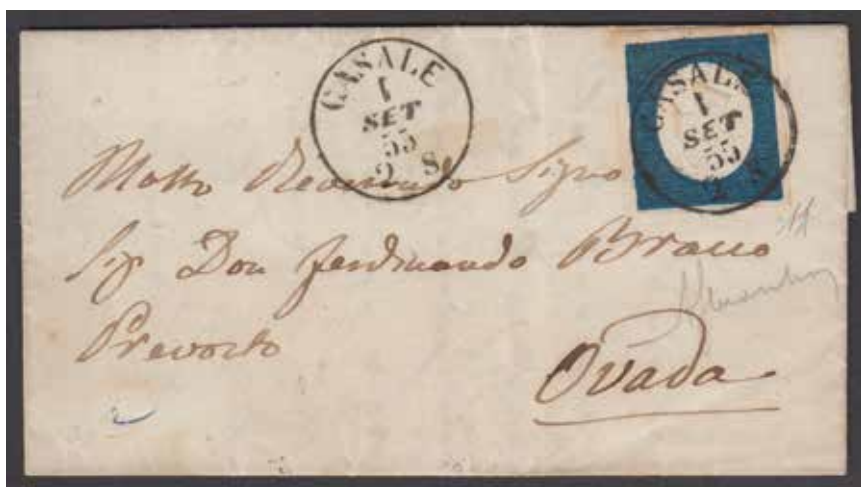 CASALE
1
SET
55
2 S
CASALE
1
SET
55
2 S
Molto Reverendo Signo
Sig Don Ferdinando Bracco
Prevosto
Ovada